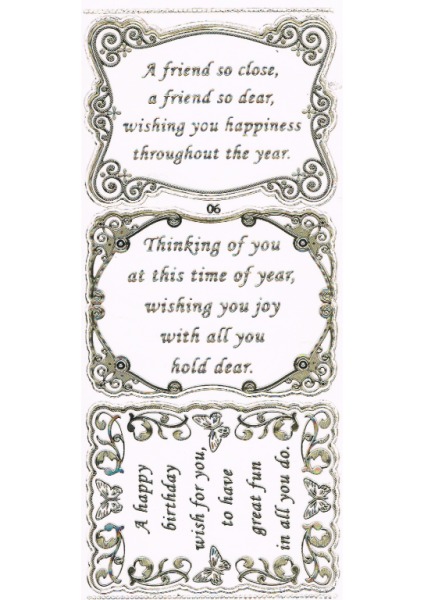 A friend so close,
a friend so dear,
wishing you happiness
throughout the year.
06
Thinking of you
at this time of year,
wishing you joy
with all you
hold dear.
A happy
birthday
wish for you,
to have
great fun
in all you do.